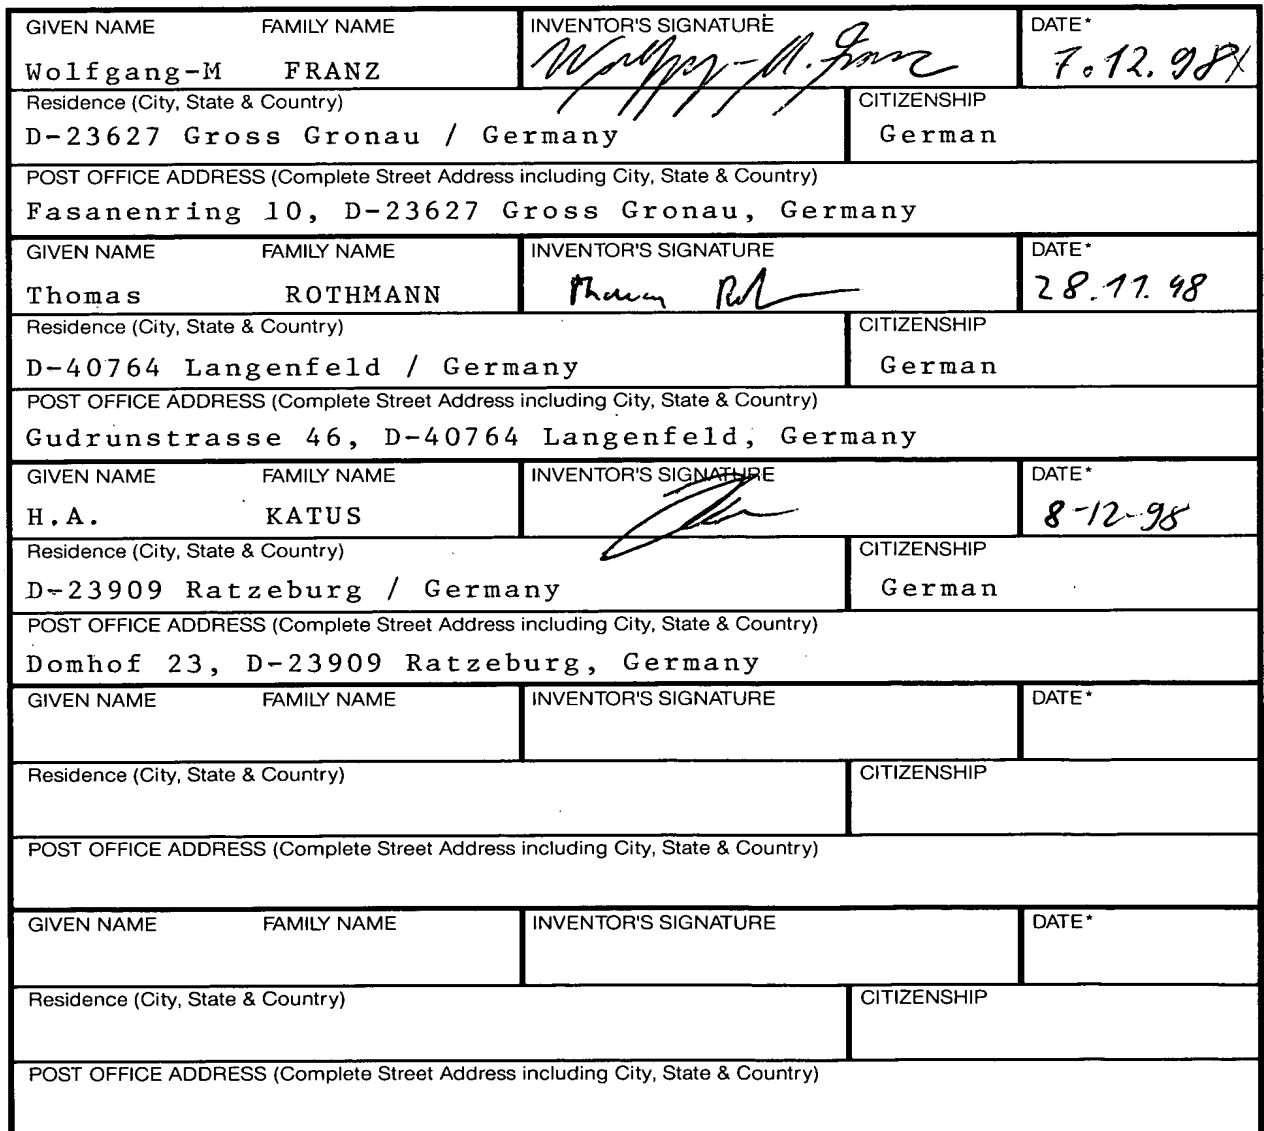 GIVEN NAME FAMILY NAME INVENTOR'S SIGNATURE DATE*
Wolfgang-M FRANZ Wolfgang-M. Franz 7.12.98
Residence (City, State & Country) CITIZENSHIP
D-23627 Gross Gronau / Germany German
POST OFFICE ADDRESS (Complete Street Address including City, State & Country)
Fasanenring 10, D-23627 Gross Gronau, Germany
GIVEN NAME FAMILY NAME INVENTOR'S SIGNATURE DATE*
Thomas ROTHMANN Thomas 28.11.98
Residence (City, State & Country) CITIZENSHIP
D-40764 Langenfeld / Germany German
POST OFFICE ADDRESS (Complete Street Address including City, State & Country)
Gudrunstrasse 46, D-40764 Langenfeld, Germany
GIVEN NAME FAMILY NAME INVENTOR'S SIGNATURE DATE*
H.A. KATUS 8-12-98
Residence (City, State & Country) CITIZENSHIP
D-23909 Ratzeburg / Germany German
POST OFFICE ADDRESS (Complete Street Address including City, State & Country)
Domhof 23, D-23909 Ratzeburg, Germany
GIVEN NAME FAMILY NAME INVENTOR'S SIGNATURE DATE*
Residence (City, State & Country) CITIZENSHIP
POST OFFICE ADDRESS (Complete Street Address including City, State & Country)
GIVEN NAME FAMILY NAME INVENTOR'S SIGNATURE DATE*
Residence (City, State & Country) CITIZENSHIP
POST OFFICE ADDRESS (Complete Street Address including City, State & Country)